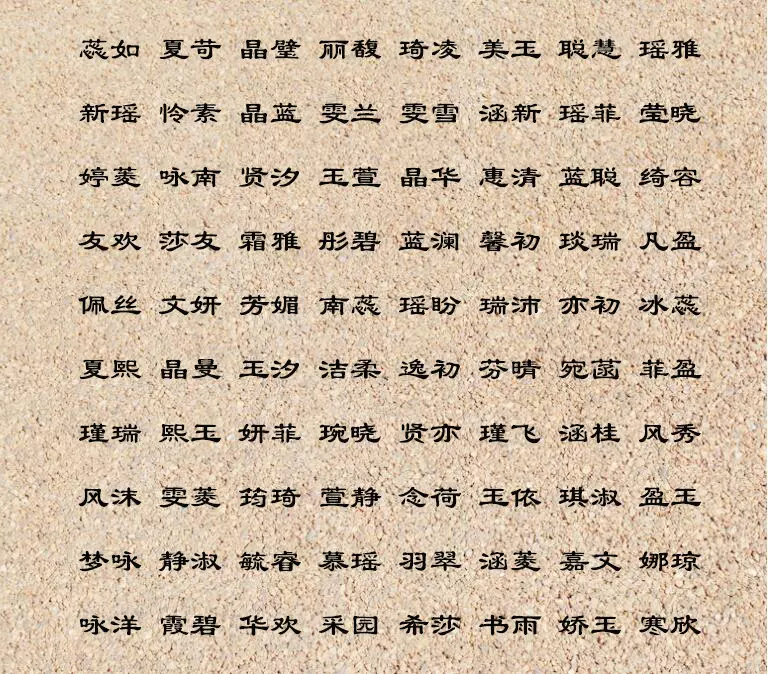 蕊如 夏苛 晶璧 丽馥 琦凌 美玉 聪慧 瑶雅
新瑶 怜素 晶蓝 雯兰 雯雪 涵新 瑶菲 莹晓
婷菱 咏南 贤汐 玉萱 晶华 惠清 蓝聪 绮容
友欢 莎友 霜雅 彤碧 蓝澜 馨初 琰瑞 凡盈
佩丝 文妍 芳媚 南蕊 瑶盼 瑞沛 亦初 冰蕊
夏熙 晶曼 玉汐 洁柔 逸初 芬晴 宛菡 菲盈
瑾瑞 熙玉 妍菲 琬晓 贤亦 瑾飞 涵桂 风秀
风沫 雯菱 筠琦 萱静 念荷 玉依 琪淑 盈玉
梦咏 静淑 毓睿 慕瑶 羽翠 涵菱 嘉文 娜琼
咏洋 霞碧 华欢 采园 希莎 书雨 娇玉 寒欣